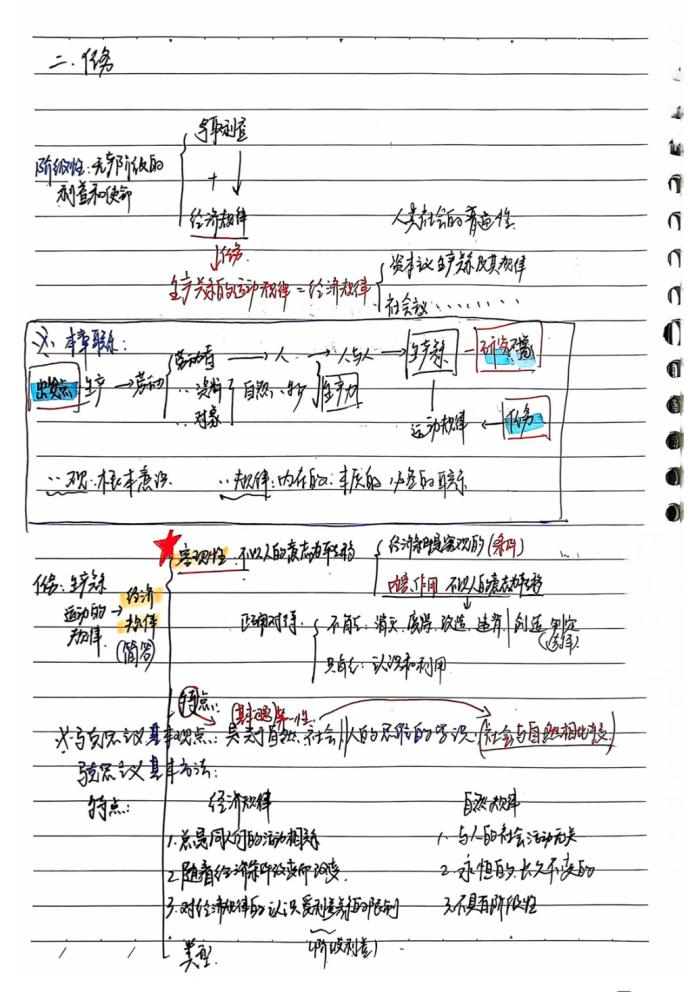 二、任务
争取利益
阶级性：无产阶级的
利益和使命
+
经济规律
人类社会的普遍性
任务
生产关系的运动规律=经济规律
资本主义生产关系及其规律
社会主义........
※、本章联系：
出发点 生产→劳动
劳动者→人→人与人→生产关系—研究对象
..资料
..对象
自然、
生产力
运动规律←任务
..观：根本意识
..规律：内在的、本质的、必然的联系
客观性：不以人的意志为转移
经济条件是客观的(条件)
内容、作用 不以人的意志为转移
任务：生产关系
运动的
规律
→经济
规律
(简答)
正确对待
不能：消灭、废除、改造、违背|创造、制定
(选择)
只能：认识和利用
特点：
※马克思主义基本观点：是关于自然、社会、人的思维的学说(社会与自然相比
马克思主义基本方法：
特点：
经济规律 自然规律
1.总是同人们的活动相联系 1.与人的社会活动无关
2.随着经济条件改变而改变 2.永恒的、长久不变的
3.对经济规律的认识受利益关系的限制 3.不具有阶级性
(阶级利益)
类型